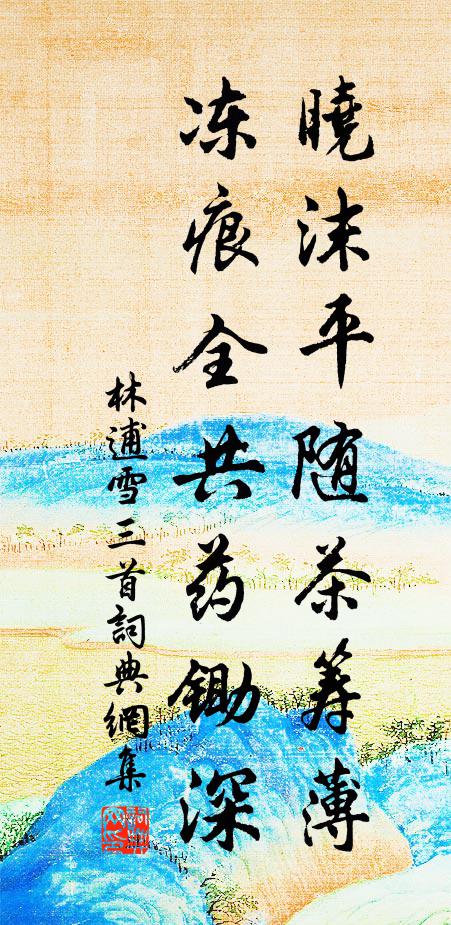 曉沫平随茶筹薄
冻痕全共药锄深
林逋雪三首詞典網集